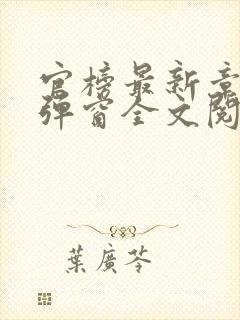 官榜最新章
弹窗全文阅
葉廣苓